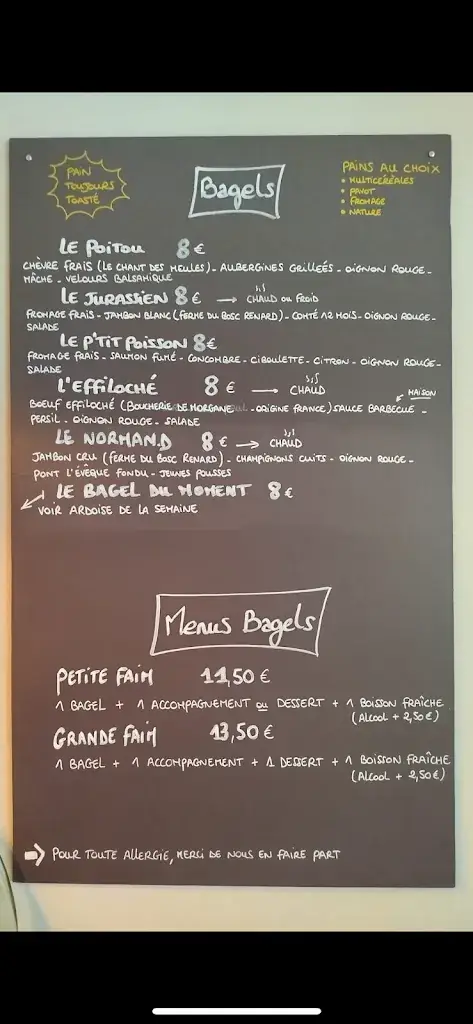 PAIN
TOUJOURS
TOASTÉ
Bagels
PAINS AU CHOIX
• MULTICÉRÉALES
• PAVOT
• FROMAGE
• NATURE
LE POITOU 8 €
CHÈVRE FRAIS (LE CHANT DES MEULES) - AUBERGINES GRILLEÉS - OIGNON ROUGE -
MÂCHE - VELOURS BALSAMIQUE
LE JURASSIEN 8 € → CHAUD OU FROID
FROMAGE FRAIS - JAMBON BLANC (FERME DU BOSC RENARD) - COMTÉ 12 MOIS - OIGNON ROUGE -
SALADE
LE P'TIT POISSON 8€
FROMAGE FRAIS - SAUMON FUMÉ - CONCOMBRE - CIBOULETTE - CITRON - OIGNON ROUGE -
SALADE
L'EFFILOCHÉ 8 € → CHAUD
MAISON
BOEUF EFFILOCHÉ (BOUCHERIE DE MORGANE - ORIGINE FRANCE) SAUCE BARBECUE -
PERSIL - OIGNON ROUGE - SALADE
LE NORMAND 8 € → CHAUD
JAMBON CRU (FERME DU BOSC RENARD) - CHAMPIGNONS CUITS - OIGNON ROUGE -
PONT L'ÉVÊQUE FONDU - JEUNES POUSSES
LE BAGEL DU MOMENT 8 €
VOIR ARDOISE DE LA SEMAINE
Menus Bagels
PETITE FAIM 11,50 €
1 BAGEL + 1 ACCOMPAGNEMENT OU DESSERT + 1 BOISSON FRAÎCHE
(ALCOOL + 2,50€)
GRANDE FAIM 13,50 €
1 BAGEL + 1 ACCOMPAGNEMENT + 1 DESSERT + 1 BOISSON FRAÎCHE
(ALCOOL + 2,50€)
→ POUR TOUTE ALLERGIE, MERCI DE NOUS EN FAIRE PART